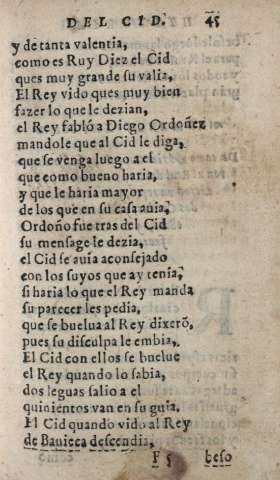 DEL CID. 45
y de tanta valentia,
como es Ruy Diez el Cid
ques muy grande su valia,
El Rey vido ques muy bien
fazer lo que le dezian,
el Rey fabló a Diego Ordoñez
mandole que al Cid le diga,
que se venga luego a el
que como bueno haria,
y que le haria mayor
de los que en su casa auia,
Ordoño fue tras del Cid
su mensage le dezia,
el Cid se auia aconsejado
con los suyos que ay tenia,
si haria lo que el Rey manda
su parecer les pedia,
que se buelua al Rey dixerõ,
pues su disculpa le embia,
El Cid con ellos se buelue
el Rey quando lo sabia,
dos leguas salio a el
quinientos van en su guia.
El Cid quando vido al Rey
de Bauieca descendia,
F 5 beso